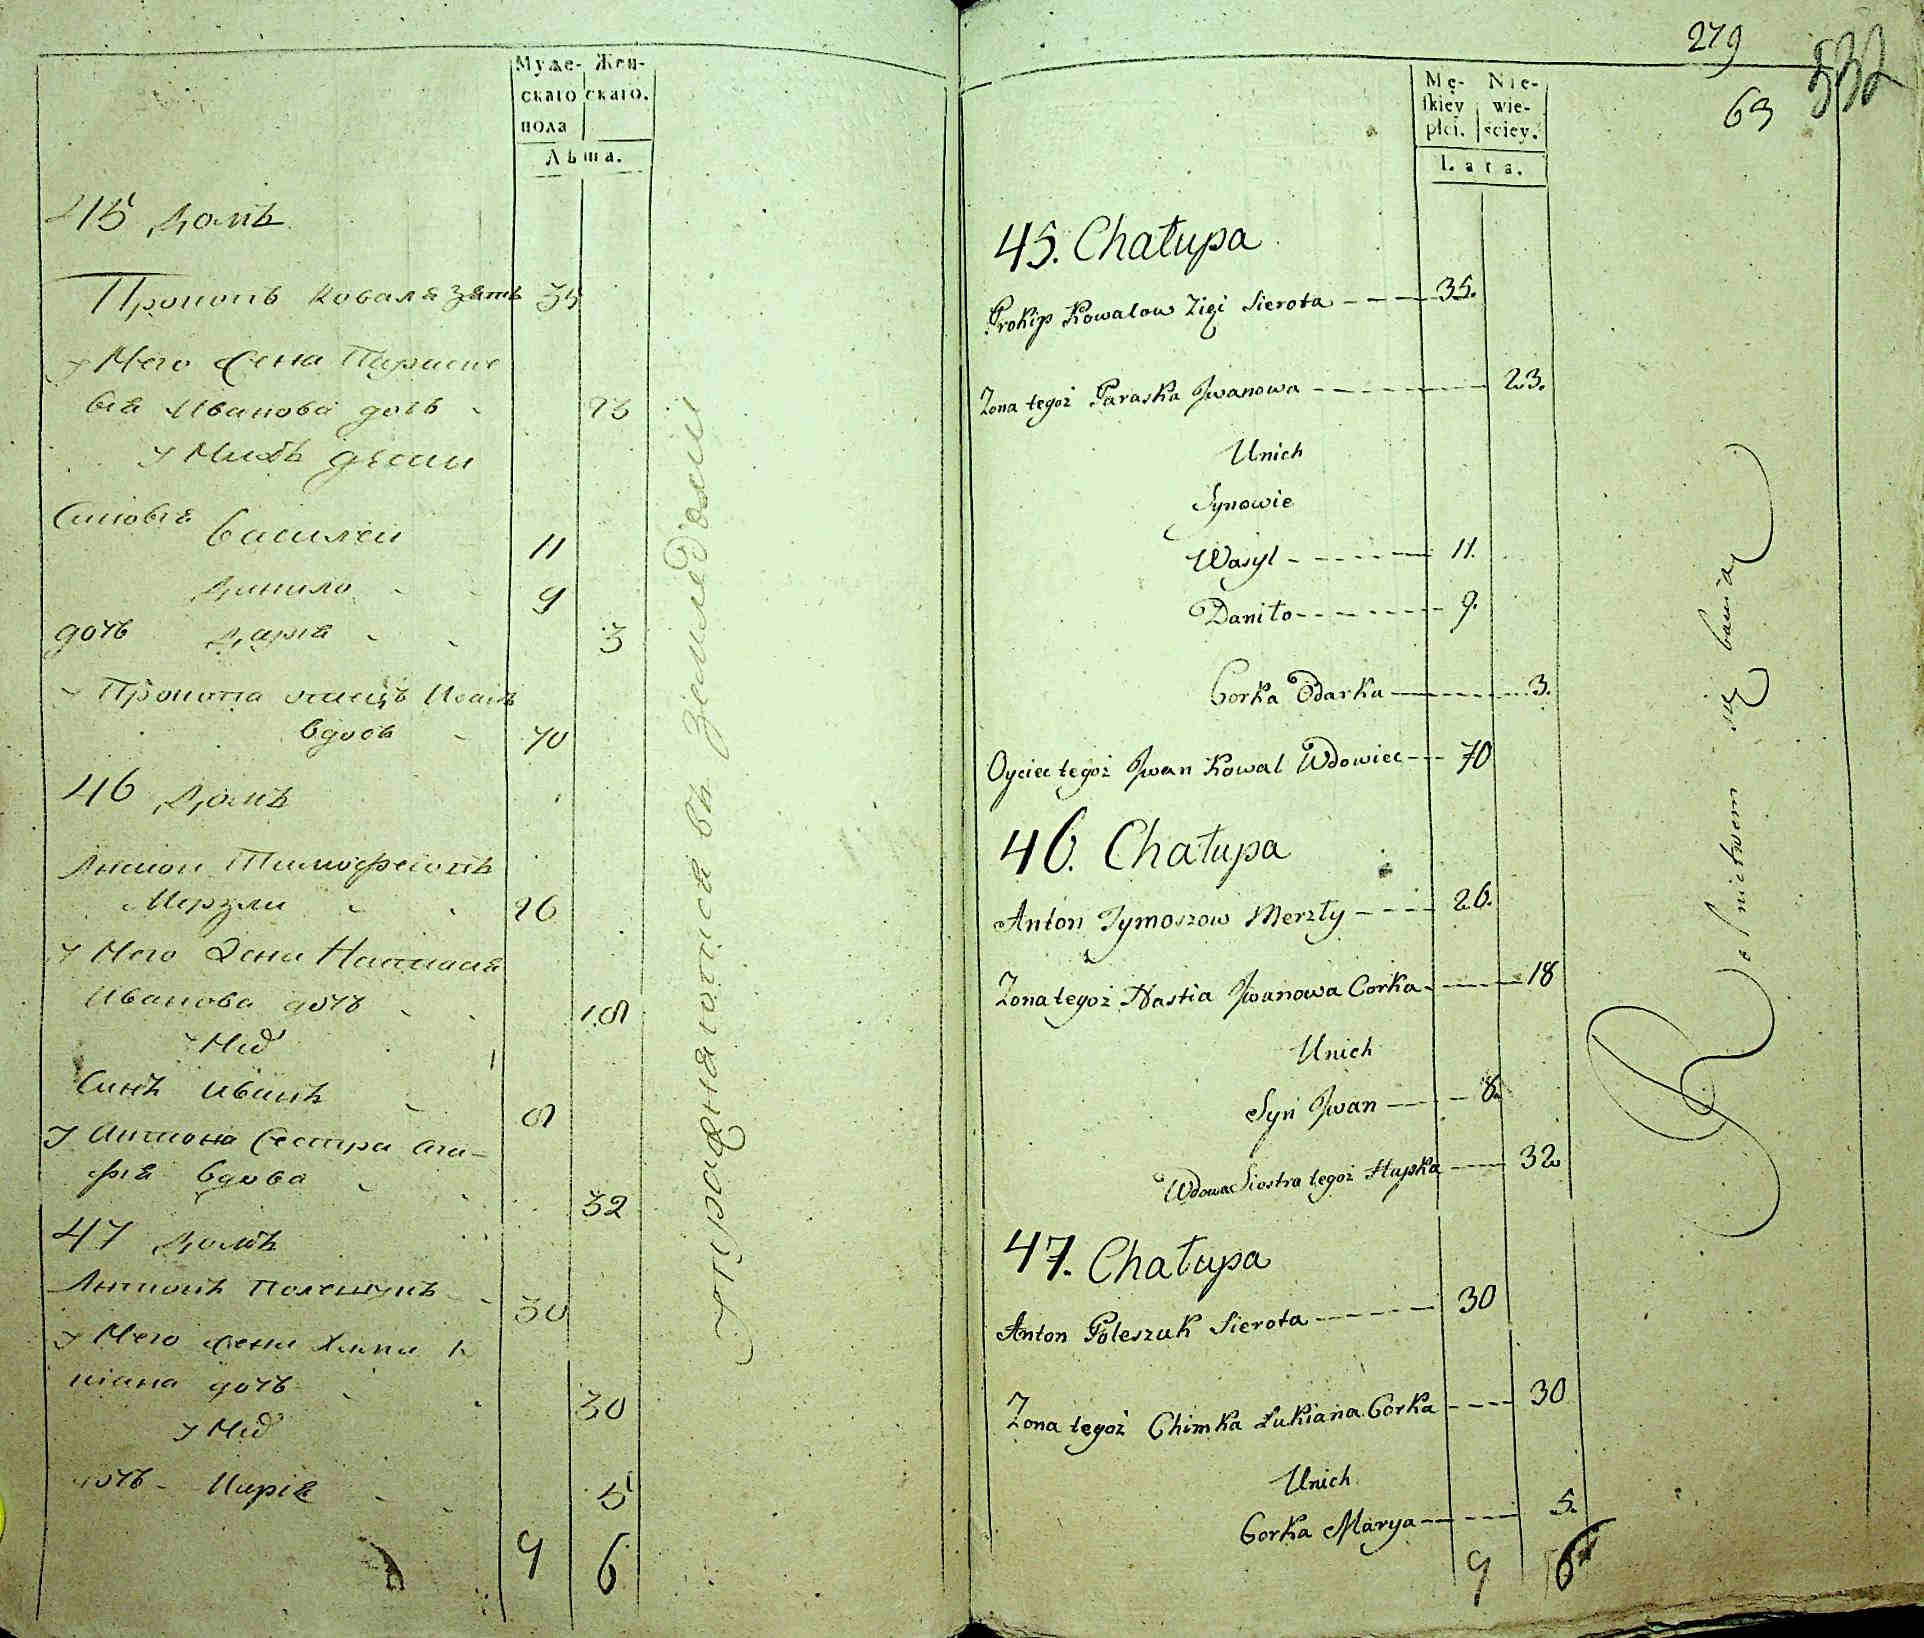 Муже- Жен-
скаго скаго.
пола
Лѣта.
45 Домъ
Прокопъ Коваля Зять 35
у Него Жена Параске
вія Иванова дочь 23
у Нихъ дѣти
Синовья Василей 11
Данило 9
дочь Дарія 3
у Прокопа отецъ Иванъ
вдовъ 70
46 Домъ
Антон Тимофеіовъ
Мерзли 26
у Него Жена Настасия
Иванова дочь 18
у Них
Синъ Иванъ 8
у Антона Сестра Ага-
фія вдова 32
47 Домъ
Антонъ Полещукъ 30
у Него Жена Химка
дочь 30
у Них
дочь Марія 5
9 6
упражнаются въ Земледолии
279
332
63
Mę- Nie-
skiey wie-
płci. sciey.
Lata.
45. Chałupa
Prokip Kowalow Zięć Sierota 35.
Zona tegoż Paraska Jwanowa 23.
Unich
Synowie
Wasyl 11.
Daniło 9.
Corka Odarka 3.
Oyciec tegoż Jwan Kowal Wdowiec 70
46. Chałupa
Anton Tymoszow Merzły 26.
Zona tegoż Nastia Jwanowa Corka 18
Unich
Syn Jwan 8.
Wdowa Siostra tegoż Hapka 32
47. Chałupa
Anton Poleszuk Sierota 30
Zona tegoż Chimka Łukiana Corka 30
Unich
Corka Marya 5.
9 6
Rolnictwem się bawią